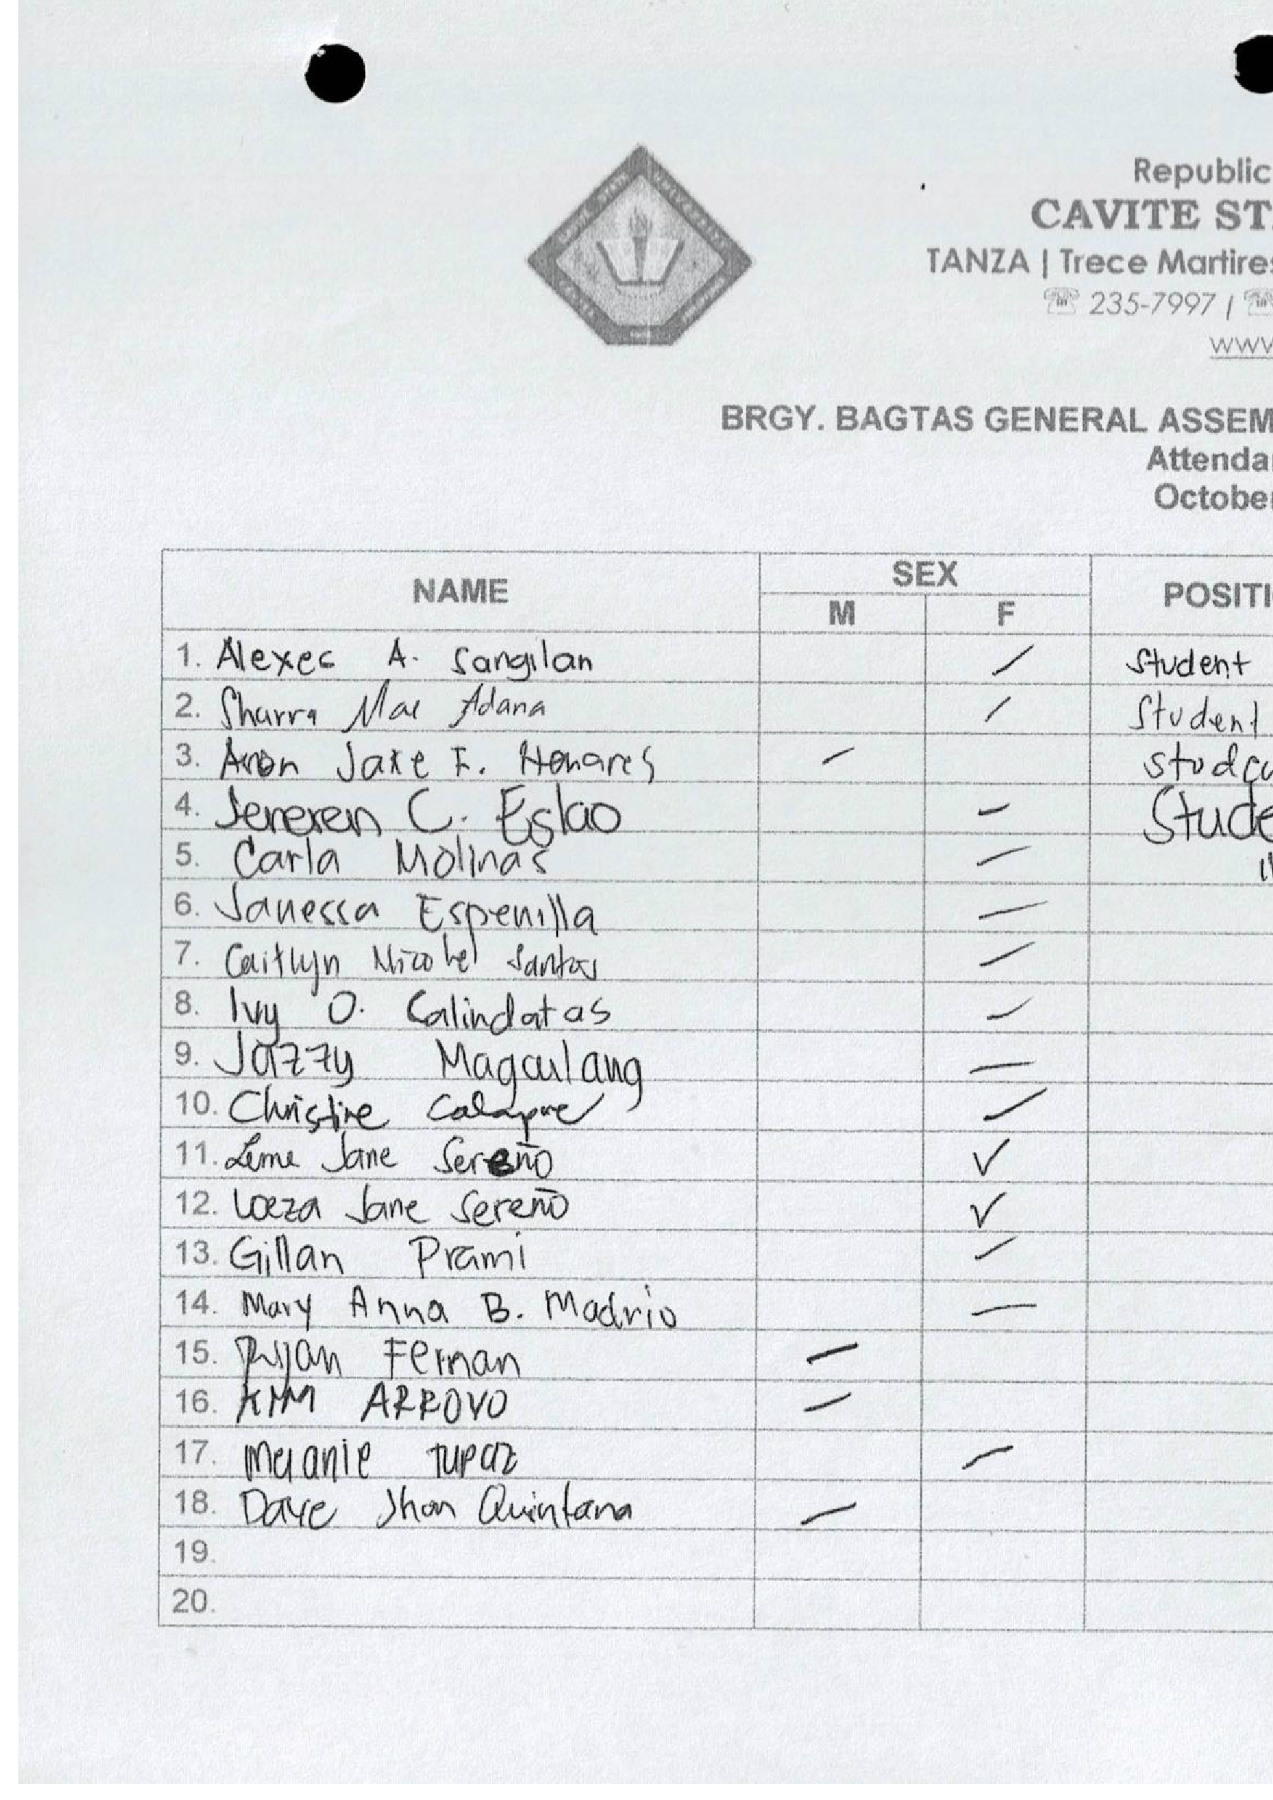 Republic
CAVITE ST
TANZA | Trece Martires
☏ 235-7997 | ☏
www
BRGY. BAGTAS GENERAL ASSEM
Attenda
October
NAME SEX POSITI
M F
1. Alexes A. Sangilan / Student
2. Sharra Mae Adana / Student
3. Aron Jake F. Henares / stude
4. Jenexen C. Eslao – Stude
5. Carla Molinas / "
6. Janessa Espenilla /
7. Caitlyn Nicohel Santos /
8. Ivy O. Calindatas /
9. Jazzy Magculang –
10. Christine /
11. Jane Sereño ✓
12. Loeza Jane Sereño ✓
13. Gillan Prami /
14. Mary Anna B. Madrio –
15. Ryan Fernan /
16. KIM ARROYO /
17. Melanie Tupaz /
18. Dave Jhon Quintana /
19.
20.